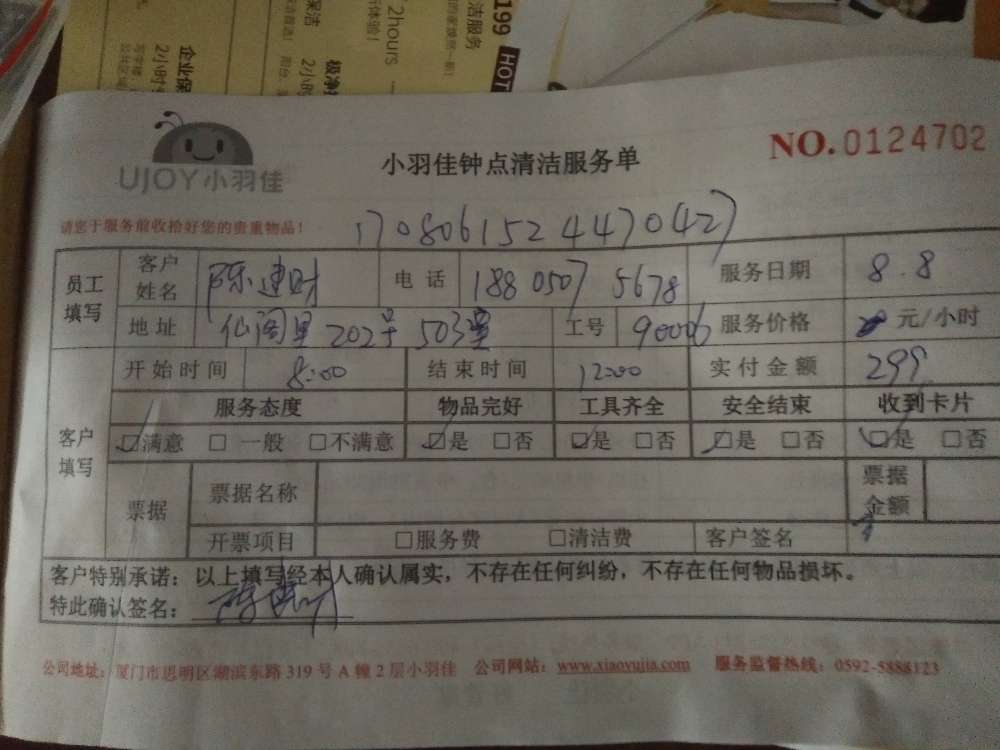 199
HOT
洁服务
2hours
保洁
极净
2小时
企业保
2小时
UJOY小羽佳
小羽佳钟点清洁服务单
NO.0124702
请您于服务前收拾好您的贵重物品!
17080615244470427
员工填写 客户姓名 陈建财 电话 18805075678 服务日期 8.8
地址 仙阁里202号503室 工号 90006 服务价格 元/小时
客户填写 开始时间 8:00 结束时间 12:00 实付金额 299
服务态度 物品完好 工具齐全 安全结束 收到卡片
☑满意 □一般 □不满意 ☑是 □否 ☑是 □否 ☑是 □否 ☑是 □否
票据 票据名称 票据金额
开票项目 □服务费 □清洁费 客户签名
客户特别承诺：以上填写经本人确认属实，不存在任何纠纷，不存在任何物品损坏。
特此确认签名：
公司地址：厦门市思明区湖滨东路 319 号 A 幢 2 层小羽佳 公司网站：www.xiaoyujia.com 服务监督热线：0592-5888123